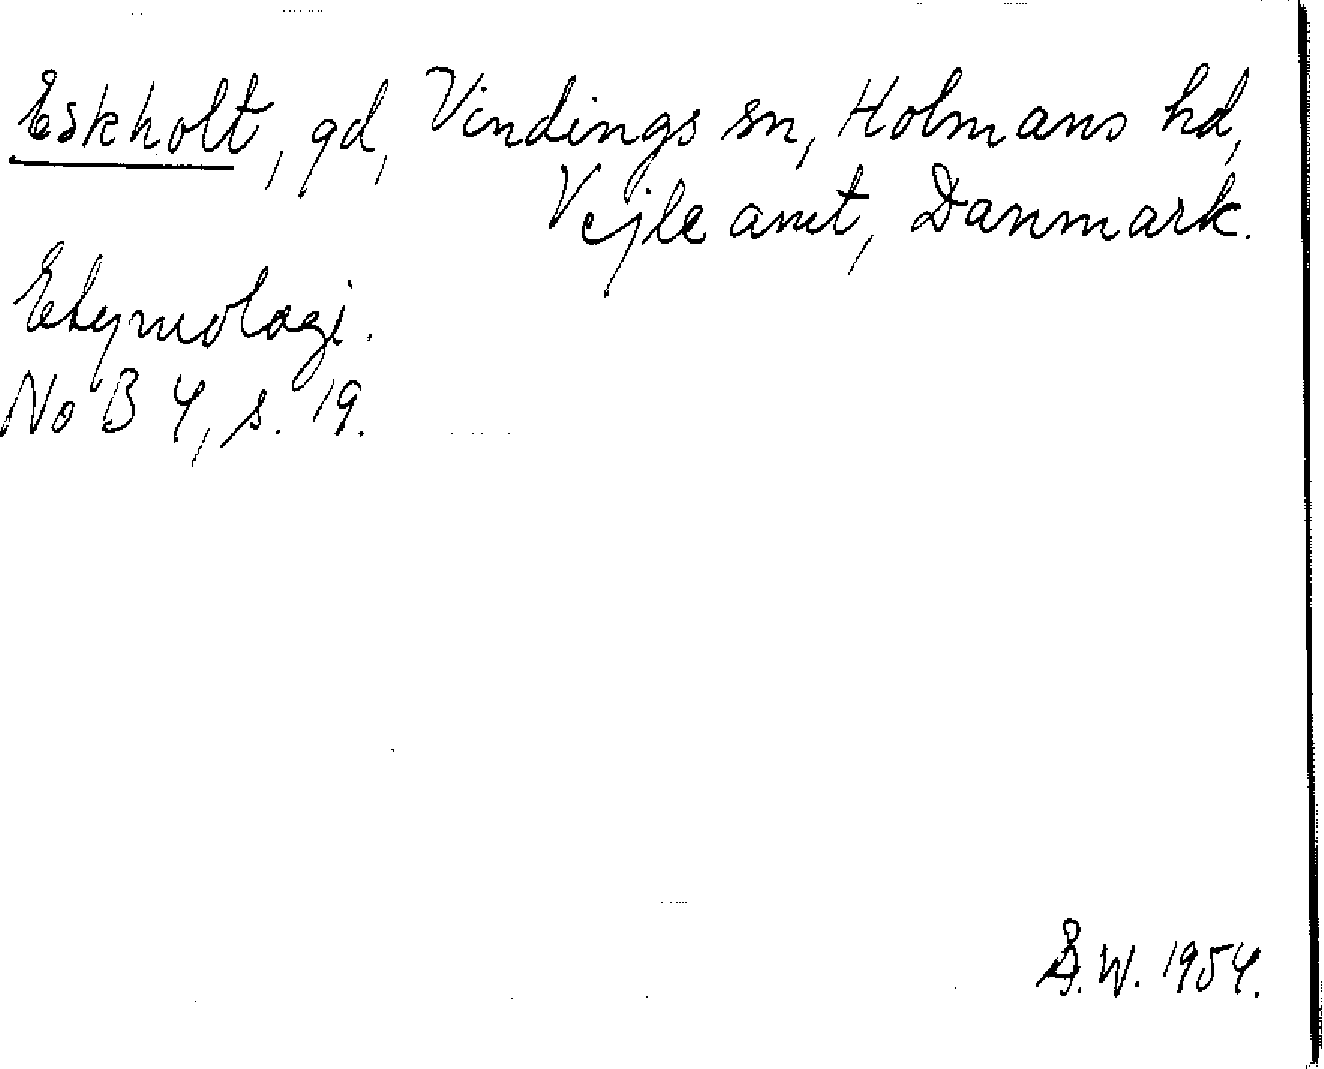 Eskholt, gd, Vindings sn, Holmans hd,
Vejle amt, Danmark.
Etymologi.
NoB 4, s. 19.
Å.W. 1954.